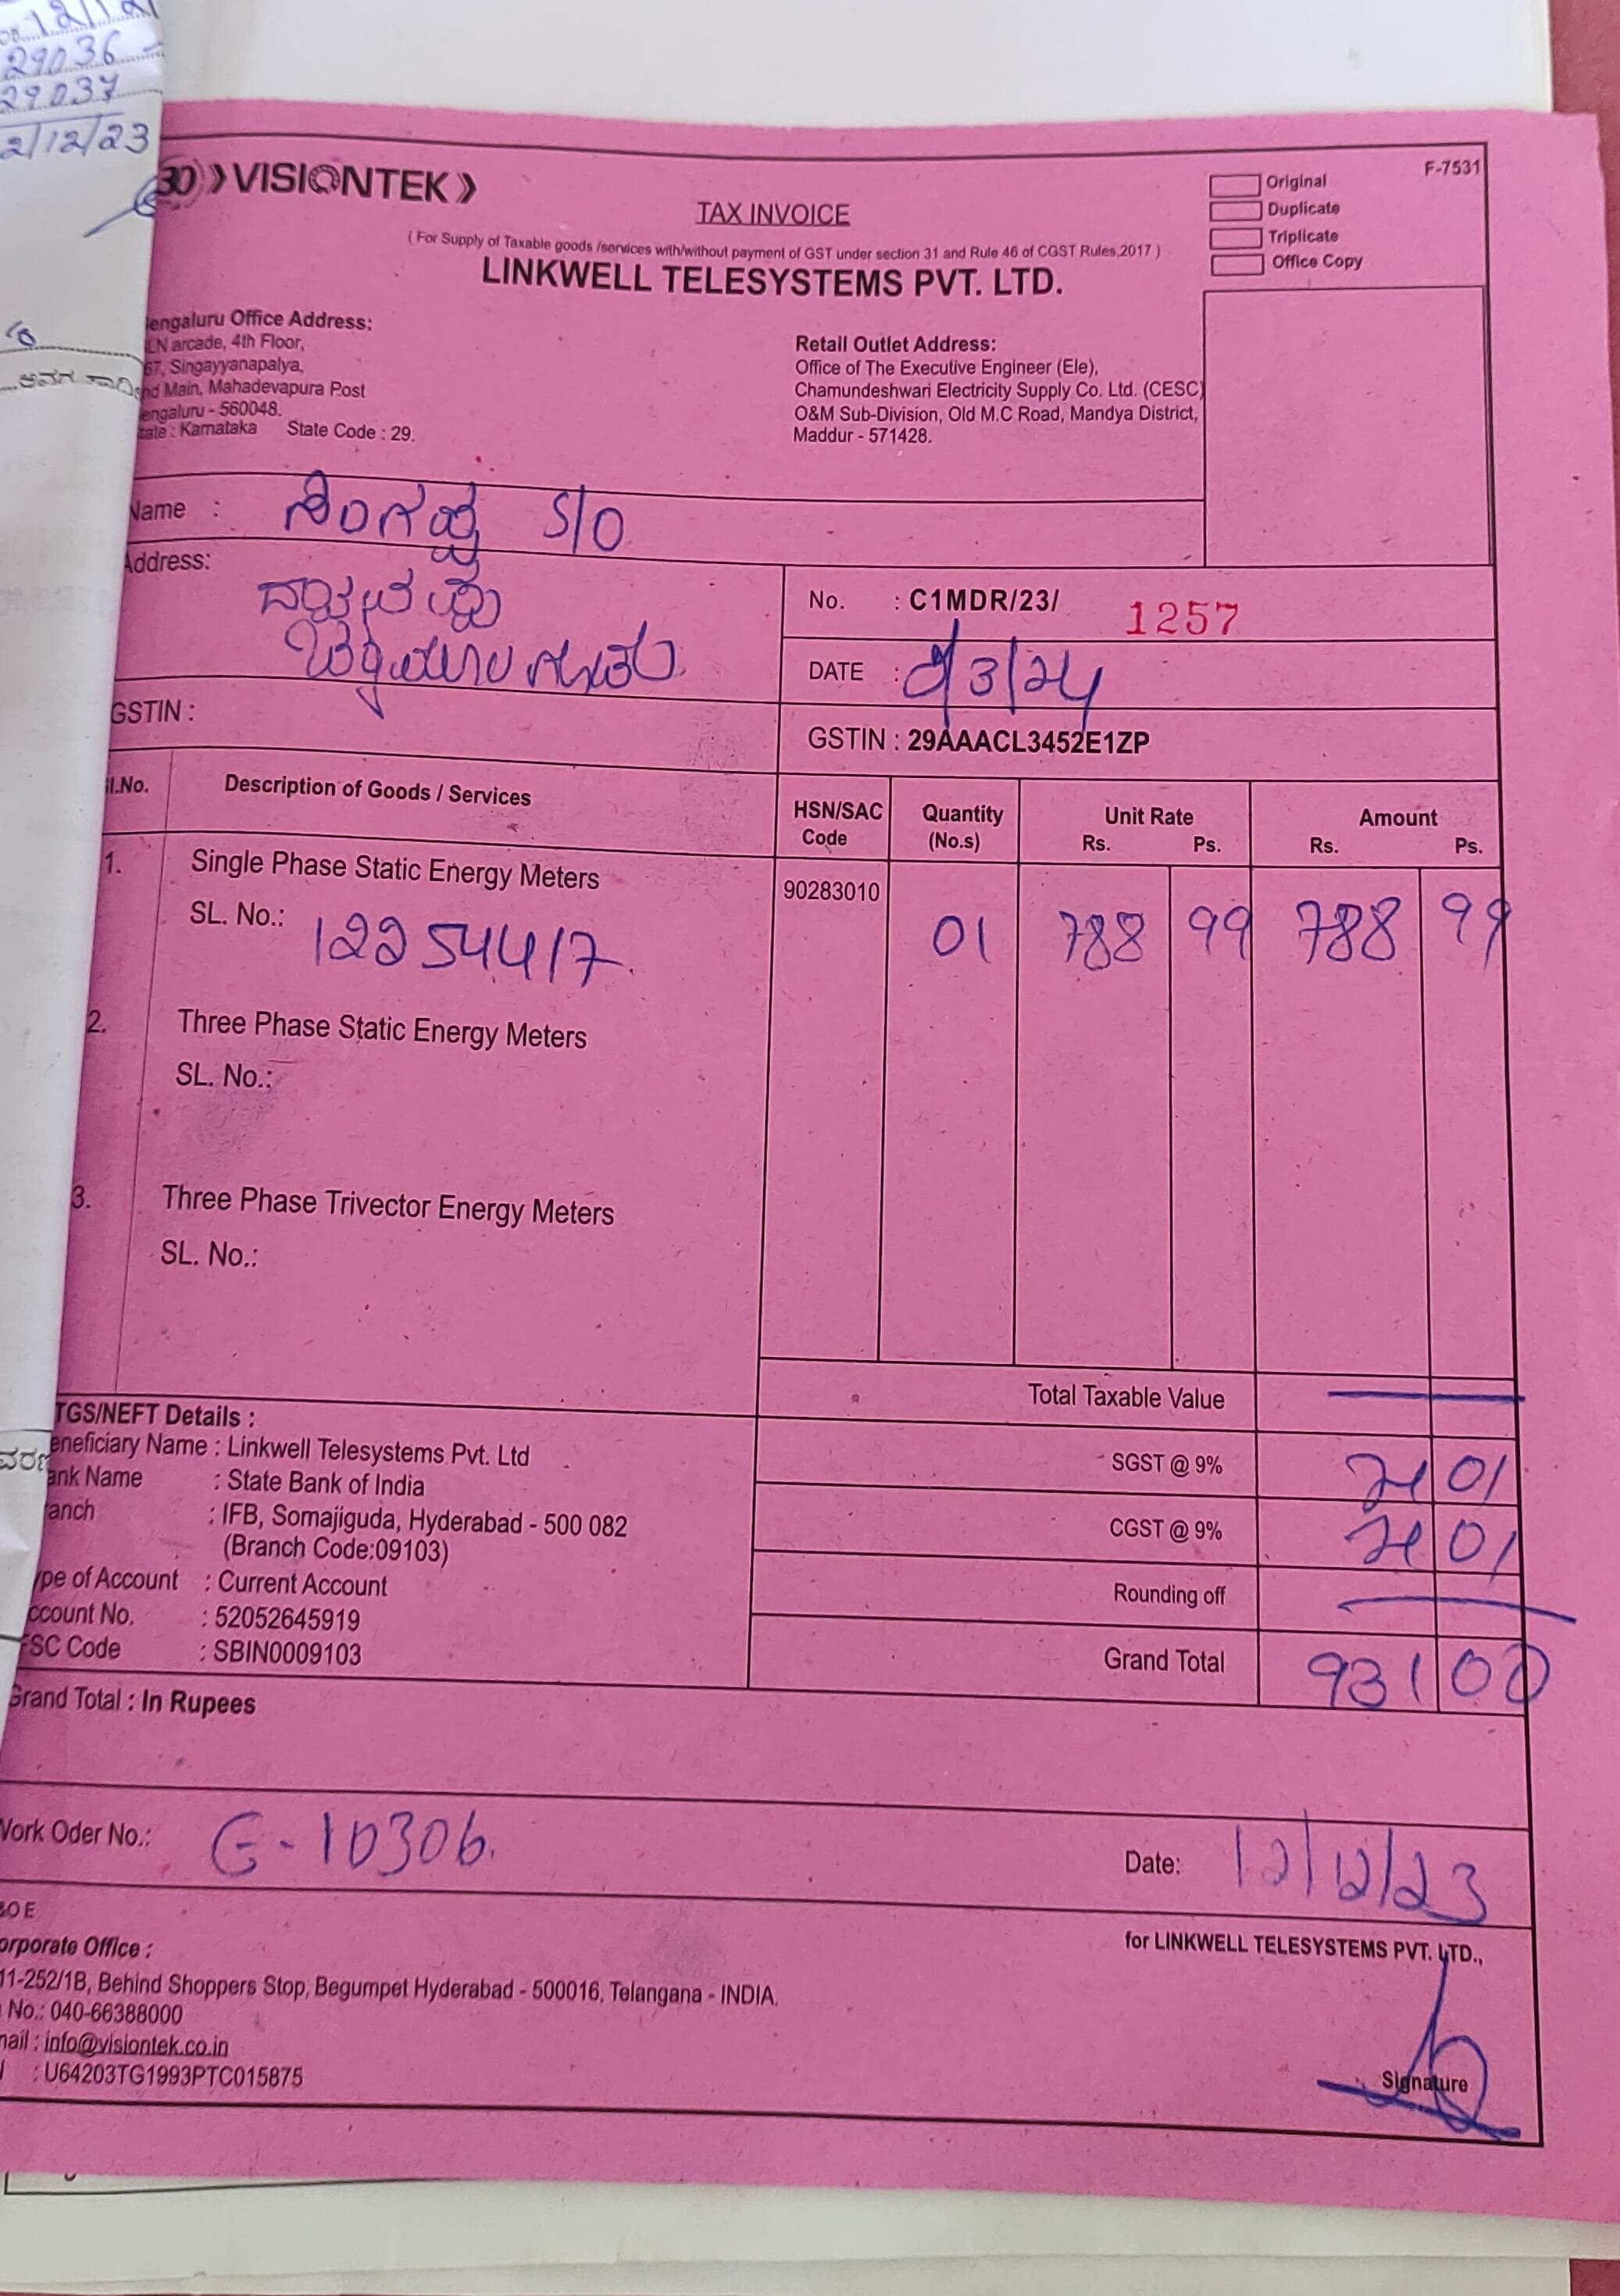 29036
29037
2/12/23
30 VISIONTEK
F-7531
Original
Duplicate
Triplicate
Office Copy
TAX INVOICE
( For Supply of Taxable goods /services with/without payment of GST under section 31 and Rule 46 of CGST Rules,2017 )
LINKWELL TELESYSTEMS PVT. LTD.
engaluru Office Address:
LN arcade, 4th Floor,
67, Singayyanapalya,
nd Main, Mahadevapura Post
engaluru - 560048.
tate : Karnataka State Code : 29.
Retail Outlet Address:
Office of The Executive Engineer (Ele),
Chamundeshwari Electricity Supply Co. Ltd. (CESC)
O&M Sub-Division, Old M.C Road, Mandya District,
Maddur - 571428.
Name : S/O
Address:
No. : C1MDR/23/ 1257
DATE : /3/24
GSTIN :
GSTIN : 29AAACL3452E1ZP
Sl.No. Description of Goods / Services HSN/SAC Code Quantity (No.s) Unit Rate Rs. Ps. Amount Rs. Ps.
1. Single Phase Static Energy Meters 90283010 01 788 99 788 99
SL. No.: 12254417.
2. Three Phase Static Energy Meters
SL. No.:
3. Three Phase Trivector Energy Meters
SL. No.:
Total Taxable Value
SGST @ 9% 71 01
CGST @ 9% 71 01
Rounding off
Grand Total 931 00
TGS/NEFT Details :
eneficiary Name : Linkwell Telesystems Pvt. Ltd
ank Name : State Bank of India
anch : IFB, Somajiguda, Hyderabad - 500 082
(Branch Code:09103)
ype of Account : Current Account
ccount No. : 52052645919
FSC Code : SBIN0009103
Grand Total : In Rupees
Work Oder No.: G-10306.
Date: 12/12/23
&O E
orporate Office :
11-252/1B, Behind Shoppers Stop, Begumpet Hyderabad - 500016, Telangana - INDIA.
No.: 040-66388000
mail : info@visiontek.co.in
: U64203TG1993PTC015875
for LINKWELL TELESYSTEMS PVT. LTD.,
Signature